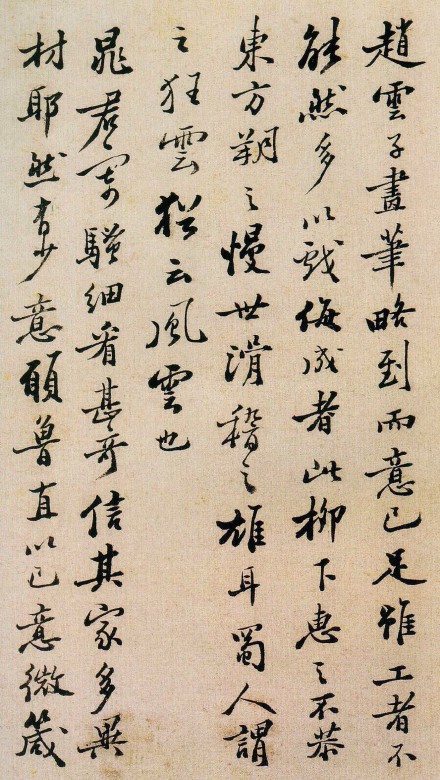 趙雲子畫筆略到而意已足雖工者不
能然多以戲侮成者此柳下惠之不恭
東方朔之慢世滑稽之雄耳蜀人謂
之狂雲猶云風雲也
晁君寄騷細看甚奇信其家多異
材耶然有少意願魯直以己意微箴